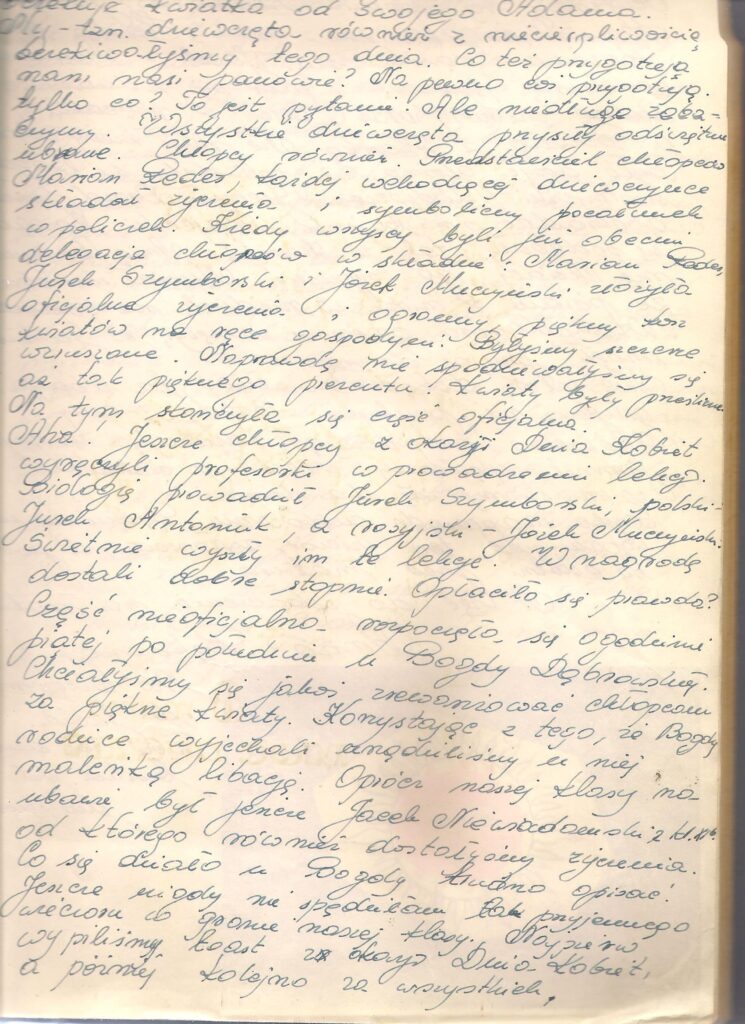 kwiatka od swojego Adama.
My - tzn. dziewczęta również z niecierpliwością
oczekiwałyśmy tego dnia. Co też przygotują
nam nasi panowie? Na pewno coś przygotują,
tylko co? To jest pytanie. Ale niedługo zoba-
czymy. Wszystkie dziewczęta przyszły odświętnie
ubrane. Chłopcy również. Przedstawiciel chłopców
Marian Reder, każdej wchodzącej dziewczynce
składał życzenia i symboliczny pocałunek
w policzek. Kiedy wszyscy byli już obecni
delegacja chłopców w składzie: Marian Reder,
Jurek Szymborski i Józek Muczyński złożyła
oficjalne życzenia i ogromny, piękny kosz
kwiatów na ręce gospodyni. Byłyśmy szczerze
wzruszone. Naprawdę nie spodziewałyśmy się
aż tak pięknego prezentu. Kwiaty były prześliczne.
Na tym skończyła się część oficjalna.
Aha! Jeszcze chłopcy z okazji Dnia Kobiet
wyręczyli profesorki w prowadzeniu lekcji.
Biologię prowadził Jurek Szymborski, polski -
Jurek Antoniuk, a rosyjski - Józek Muczyński.
Świetnie wyszły im te lekcje. W nagrodę
dostali dobre stopnie. Opłaciło się prawda?
Część nieoficjalna rozpoczęła się o godzinie
piątej po południu u Bogdy Dąbrowskiej.
Chciałyśmy się jakoś zrewanżować chłopcom
za piękne kwiaty. Korzystając z tego, że Bogdy
rodzice wyjechali urządziliśmy u niej
maleńką libację. Oprócz naszej klasy na
ubawie był jeszcze Jacek Niewiadomski z kl.
od którego również dostałyśmy życzenia.
Co się działo u Bogdy trudno opisać.
Jeszcze nigdy nie spędziłam tak przyjemnego
wieczoru w gronie naszej klasy. Najpierw
wypiliśmy toast z okazji Dnia Kobiet,
a później kolejno za wszystkich,